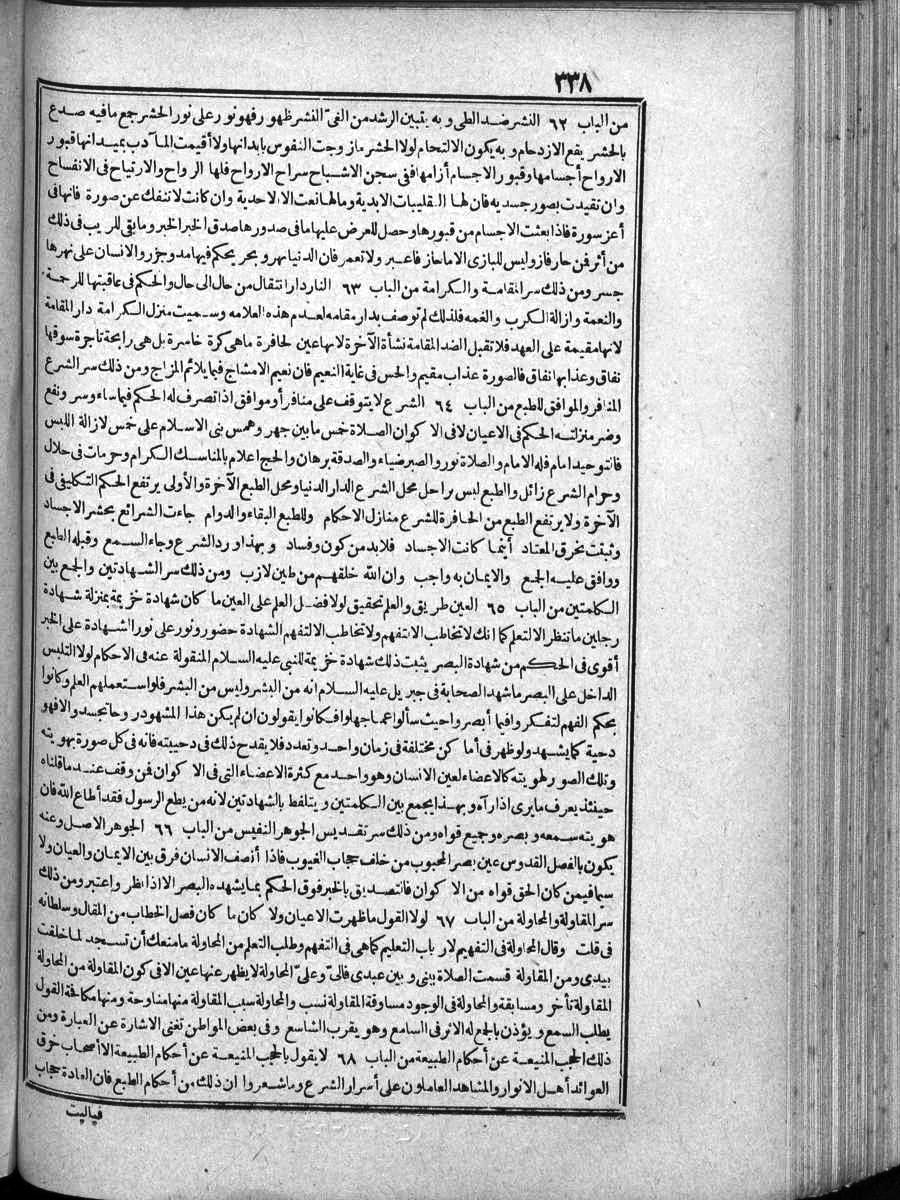 ٣٣٨
من الباب ٦٢ النشر ضد الطى وبه يتبين الرشد من الغى النشر ظهور رفهو نور على نور الحشر جمع ما فيه صدع
بالحشر يقع الازدحام وبه يكون الالتحام لولا الحشر ما زوجت النفوس بابدانها ولا أقيمت المآدب بميدانها قبور
الارواح أجسامها وقبور الاجسام أزامها ففى سجن الاشباح سراح الارواح فلها الرواح والارتياح فى الانفساح
وان تقيدت بصور جسدية فان لها التقليبات الابدية وما لها نعت الا الاحدية وان كانت لا تنفك عن صورة فانها فى
أعز سورة فاذا بعثت الاجسام من قبورها وحصل للعرض عليها ما فى صدورها صدق الخبر الخبر وما بقى للريب فى ذلك
من أثر فن حار فاز وليس للبازى الا ما حاز فاعبر ولا تعمر فان الدنيا نهر وبحر يحكم فيها مد وجزر والانسان على نهرها
جسر ومن ذلك سر المقامة والكرامة من الباب ٦٣ النار دار انتقال من حال الى حال والحكم فى عاقبتها للرحمة
والنعمة وازالة الكرب والغمه فلذلك لم توصف بدار مقامه لعدم هذه العلامه وسميت منزل الكرامة دار المقامة
لانها مقيمة على العهد فلا تقبل الضد المقامة نشأة الآخرة لانها عين لحافرة ما هى كرة خاسرة بل هى رابحة تاجرة سوقها
نفاق وعذابها نفاق فالصورة عذاب مقيم والحس فى غاية النعيم فان نعيم الامشاج فيما يلائم المزاج ومن ذلك سر الشرع
المنافر والموافق للطبع من الباب ٦٤ الشرع لا يتوقف على منافر أو موافق اذا تصرف له الحكم فيما ساء وسر ونفع
وضر منزلته الحكم فى الاعيان لا فى الاكوان الصلاة خمس ما بين جهر وهمس بنى الاسلام على خمس لازالة اللبس
فالتوحيد امام فله الامام والصلاة نور والصبر ضياء والصدقة برهان والحج اعلام بالمناسك الكرام وحرمات فى حلال
وحرام الشرع زائل والطبع ليس براحل محل الشرع الدار الدنيا ومحل الطبع الآخرة والأولى يرتفع الحكم التكليفى فى
الآخرة ولا يرتفع الطبع من الحافرة للشرع منازل الاحكام وللطبع البقاء والدوام جاءت الشرائع بحشر الاجساد
وثبتت بخرق المعتاد أينما كانت الاجساد فلابد من كون وفساد وبهذا ورد الشرع وجاء السمع وقبله الطبع
ووافق عليه الجمع والايمان به واجب وان الله خلقهم من طين لازب ومن ذلك سر الشهادتين والجمع بين
الكلمتين من الباب ٦٥ العين طريق والعلم تحقيق لولا فضل العلم على العين ما كان شهادة خزيمة بمنزلة شهادة
رجلين ما تنظر الا لتعلم كما انك لا تخاطب الا لتفهم ولا تخاطب الا لتفهم الشهادة حضور ونور على نور الشهادة على الخبر
أقوى فى الحكم من شهادة البصر يثبت ذلك شهادة خزيمة للنبى عليه السلام المنقولة عنه فى الاحكام لولا التلبس
الداخل على البصر ما شهد الصحابة فى جبريل عليه السلام انه من البشر وليس من البشر فلو استعملهم العلم وكانوا
بحكم الفهم لتفكروا فيما أبصروا حيث سألوا عما جهلوا فكانوا يقولون ان لم يكن هذا المشهود روحا تجسد والا فهو
دحية كما يشهد ولو ظهر فى أماكن مختلفة فى زمان واحد وتعدد فلا يقدح ذلك فى دحيته فانه فى كل صورة بهويته
وتلك الصور لهويته كالاعضاء لعين الانسان وهو واحد مع كثرة الاعضاء التى فى الاكوان فن وقف عند ما قلناه
حينئذ يعرف ما يرى اذا رآه وبهذا يجمع بين الكلمتين ويتلفظ بالشهادتين لانه من يطع الرسول فقد أطاع الله فان
هويته سمعه وبصره وجميع قواه ومن ذلك سر تقديس الجوهر النفيس من الباب ٦٦ الجوهر الاصل وعنه
يكون بالفصل القدوس عين بصر المحبوب من خلف حجاب الغيوب فاذا أنصف الانسان فرق بين الايمان والعيان ولا
سيما فيمن كان الحق قواه من الاكوان فالتصديق بالخبر فوق الحكم بما يشهده البصر الا اذا نظر واعتبر ومن ذلك
سر المقاولة والمحاولة من الباب ٦٧ لولا القول ما ظهرت الاعيان ولا كان ما كان فصل الخطاب من المقال وسلطانه
فى قلت وقال المحاولة فى التفهيم لارباب التعليم كما هى فى التفهم وطلب التعلم من المحاولة ما منعك أن تسجد لما خلقت
بيدى ومن المقاولة قسمت الصلاة بينى وبين عبدى فالىّ وعلىّ المحاولة لا يظهر عنها عين الا فى كون المقاولة من المحاولة
المقاولة تأخر ومسابقة والمحاولة فى الوجود مساوقة المقاولة نسب والمحاولة سبب المقاولة منها مناوحة ومنها مكافحة القول
يطلب السمع ويؤذن بالجمع له الاثر فى السامع وهو يقرب الشاسع وفى بعض المواطن تغنى الاشارة عن العبارة ومن
ذلك الحجب المنيعة عن أحكام الطبيعة من الباب ٦٨ لا يقول بالحجب المنيعة عن أحكام الطبيعة الا أصحاب خرق
العوائد أهل الانوار والمشاهد العاملون على أسرار الشرع وما شعروا ان ذلك من أحكام الطبع فان العادة حجاب
فياليت